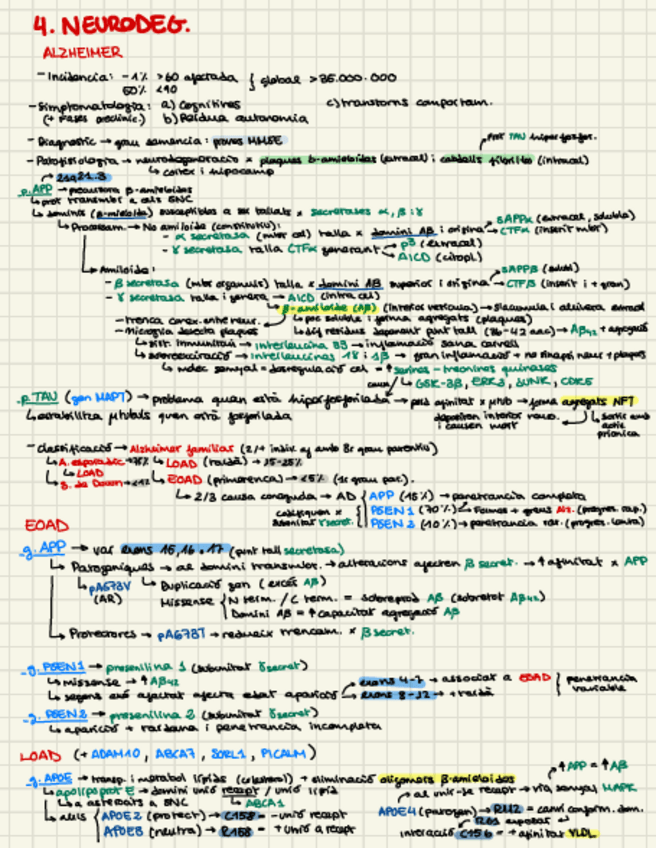 4. NEURODEG.
ALZHEIMER
- Incidencia: ~1% >60 afectada } global >35.000.000
50% <90
- Simptomatologia: a) Cognitives c) transtorns comportam.
(+ Fases preclínic.) b) Pèrdua autonomia
- Diagnostic → grau demencia: proves MMSE
Prot TAU hiperfosfor.
- Patofisiologia → neurodegeneració x plaques b-amieloides (extracel) i cabdells fibril·la (intracel)
↳ cortex i hipocamp
21q21.3
p.APP → precursora β-amieloides
↳ prot transmbr a cèls SNC
↳ dominis (β-amieloide) susceptibles a ser tallats x secretases α, β i γ
↳ Processam. → No amiloide (constitutiu):
- α secretasa (mbr cel) talla x domini AB i origina → sAPPα (extracel, soluble)
→ CTFα (inserit mbr)
- γ secretasa talla CTFα generant → p3 (extracel)
AICD (citopl)
↳ Amiloide:
- β secretasa (mbr organuls) talla x domini AB superior i origina → sAPPβ (solubl)
→ CTFβ (inserit i + gran)
- γ secretasa talla i genera → AICD (intracel)
↳ β-amieloide (Aβ) (interior vesícula) → s'acumula i allibera extracel
- trenca conex. entre neur. ↳ poc soluble i forma agregats (plaques)
- microglia detecta plaques ↳ dif residus depenent punt tall (36-42 aac) → Aβ42 + apogció
↳ sist. immunitari → interleucina → inflamació sana cervell
↳ sobreexcitació → interleucines 18 i 1β → gran inflamació + no sinapsi neur + plaques
↳ = desregulació cel = ↑ serines - treonines quinases
↳ GSK-3β, ERK2, JUNK, CDK5
p.TAU (gen MAPT) → problema quan està hiperfosforilada → perd afinitat x µtub → forma agregats NFT
↳ estabilitza µtubuls quan està fosforilada depositen interior neur. i causen mort
- Classificació → Alzheimer familiar (2/+ indiv af amb 3r grau parentiu)
↳ A. esporadic → 75% ↳ LOAD (tardà) → 15-25%
↳ LOAD ↳ EOAD (primerenca) → <5% (1r grau par.)
↳ S. de Down → <1%
↳ 2/3 causa coneguda → AD { APP (15%) → penetrancia completa
codifiquen x subunitat γsecret. { PSEN1 (70%) → Formes + greus Alz. (progres. rap.)
PSEN2 (10%) → penetrancia var. (progres. lenta)
EOAD
- g. APP → var exons 15, 16 i 17 (punt tall secretasa)
↳ Patogeniques → al domini transmbr. → alteracions afecten β secret. → ↑ afinitat x APP
↳ pA673V (AR) ↳ Duplicació gen (excés Aβ)
Missense { N term. / C term. = sobreprod Aβ (sobretot Aβ42)
Domini Aβ = ↑ capacitat agregació Aβ
↳ Protectores → pA673T → redueix trencam. x β secret.
- g. PSEN1 → presenilina 1 (subunitat γsecret)
↳ missense → ↑ Aβ42
↳ segons exó afectat afecta edat aparició → exons 4-7 → associat a EOAD } penetrancia variable
→ exons 8-12 → + tardà
- g. PSEN2 → presenilina 2 (subunitat γsecret)
↳ aparició + tardana i penetrancia incompleta
LOAD (+ ADAM10, ABCA7, SORL1, PICALM)
- g. APOE → transp. i metabol lípids (colesterol) + eliminació oligomers β-amieloides ↑ APP = ↑ Aβ
↳ apolipoprot E → domini unió recept / unió lípid al unir-se recept → via senyal MAPK
↳ a astròcits a SNC ↳ ABCA1
↳ al·lels { APOE2 (protect) → C158 = - unió recept APOE4 (patogen) → R112 = canvi conform. dom.
APOE3 (neutra) → R158 = + unió a recept R61 exposar
interacció C156 = + afinitat VLDL